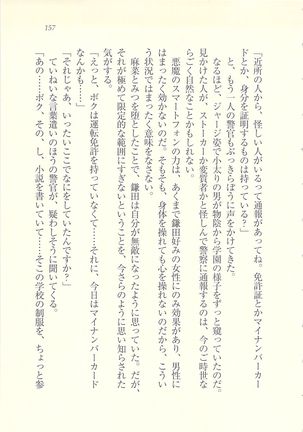 157
「近所の人から、怪しい人がいるって通報があってね。免許証とかマイナンバーカー
ドとか、身分を証明するものは持っている？」
と、もう一人の警官もぶっきらぼうに声をかけてきた。
なるほど、ジャージ姿で小太りの男が物陰から学園の様子をずっと窺っていたのだ。
見かけた人が、ストーカーか変質者かと怪しんで警察に通報するのは、今のご時世な
らごく自然なことかもしれない。
悪魔のスマートフォンの力は、あくまで鎌田好みの女性にのみ効果があり、男性に
はまったく効かないのだ。そもそも、身体を操れても心を操れないのだから、こうい
う状況ではまったく意味をなさない。
麻菜とみつを堕としたことで、鎌田は自分が無敵になったように思っていた。だが、
それが極めて限定的な範囲にすぎないということを、今さらのように思い知らされた
気がする。
「えっと、ボクは運転免許を持っていなくて……それに、今日はマイナンバーカード
なんかも……」
「それじゃあ、いったいここでなにをしていたんですか？」
ていねいな言葉遣いのほうの警官が、疑わしそうに聞いてくる。
「あの……ボク、その、し、小説を書いていて……そこの学校の制服を、ちょっと参